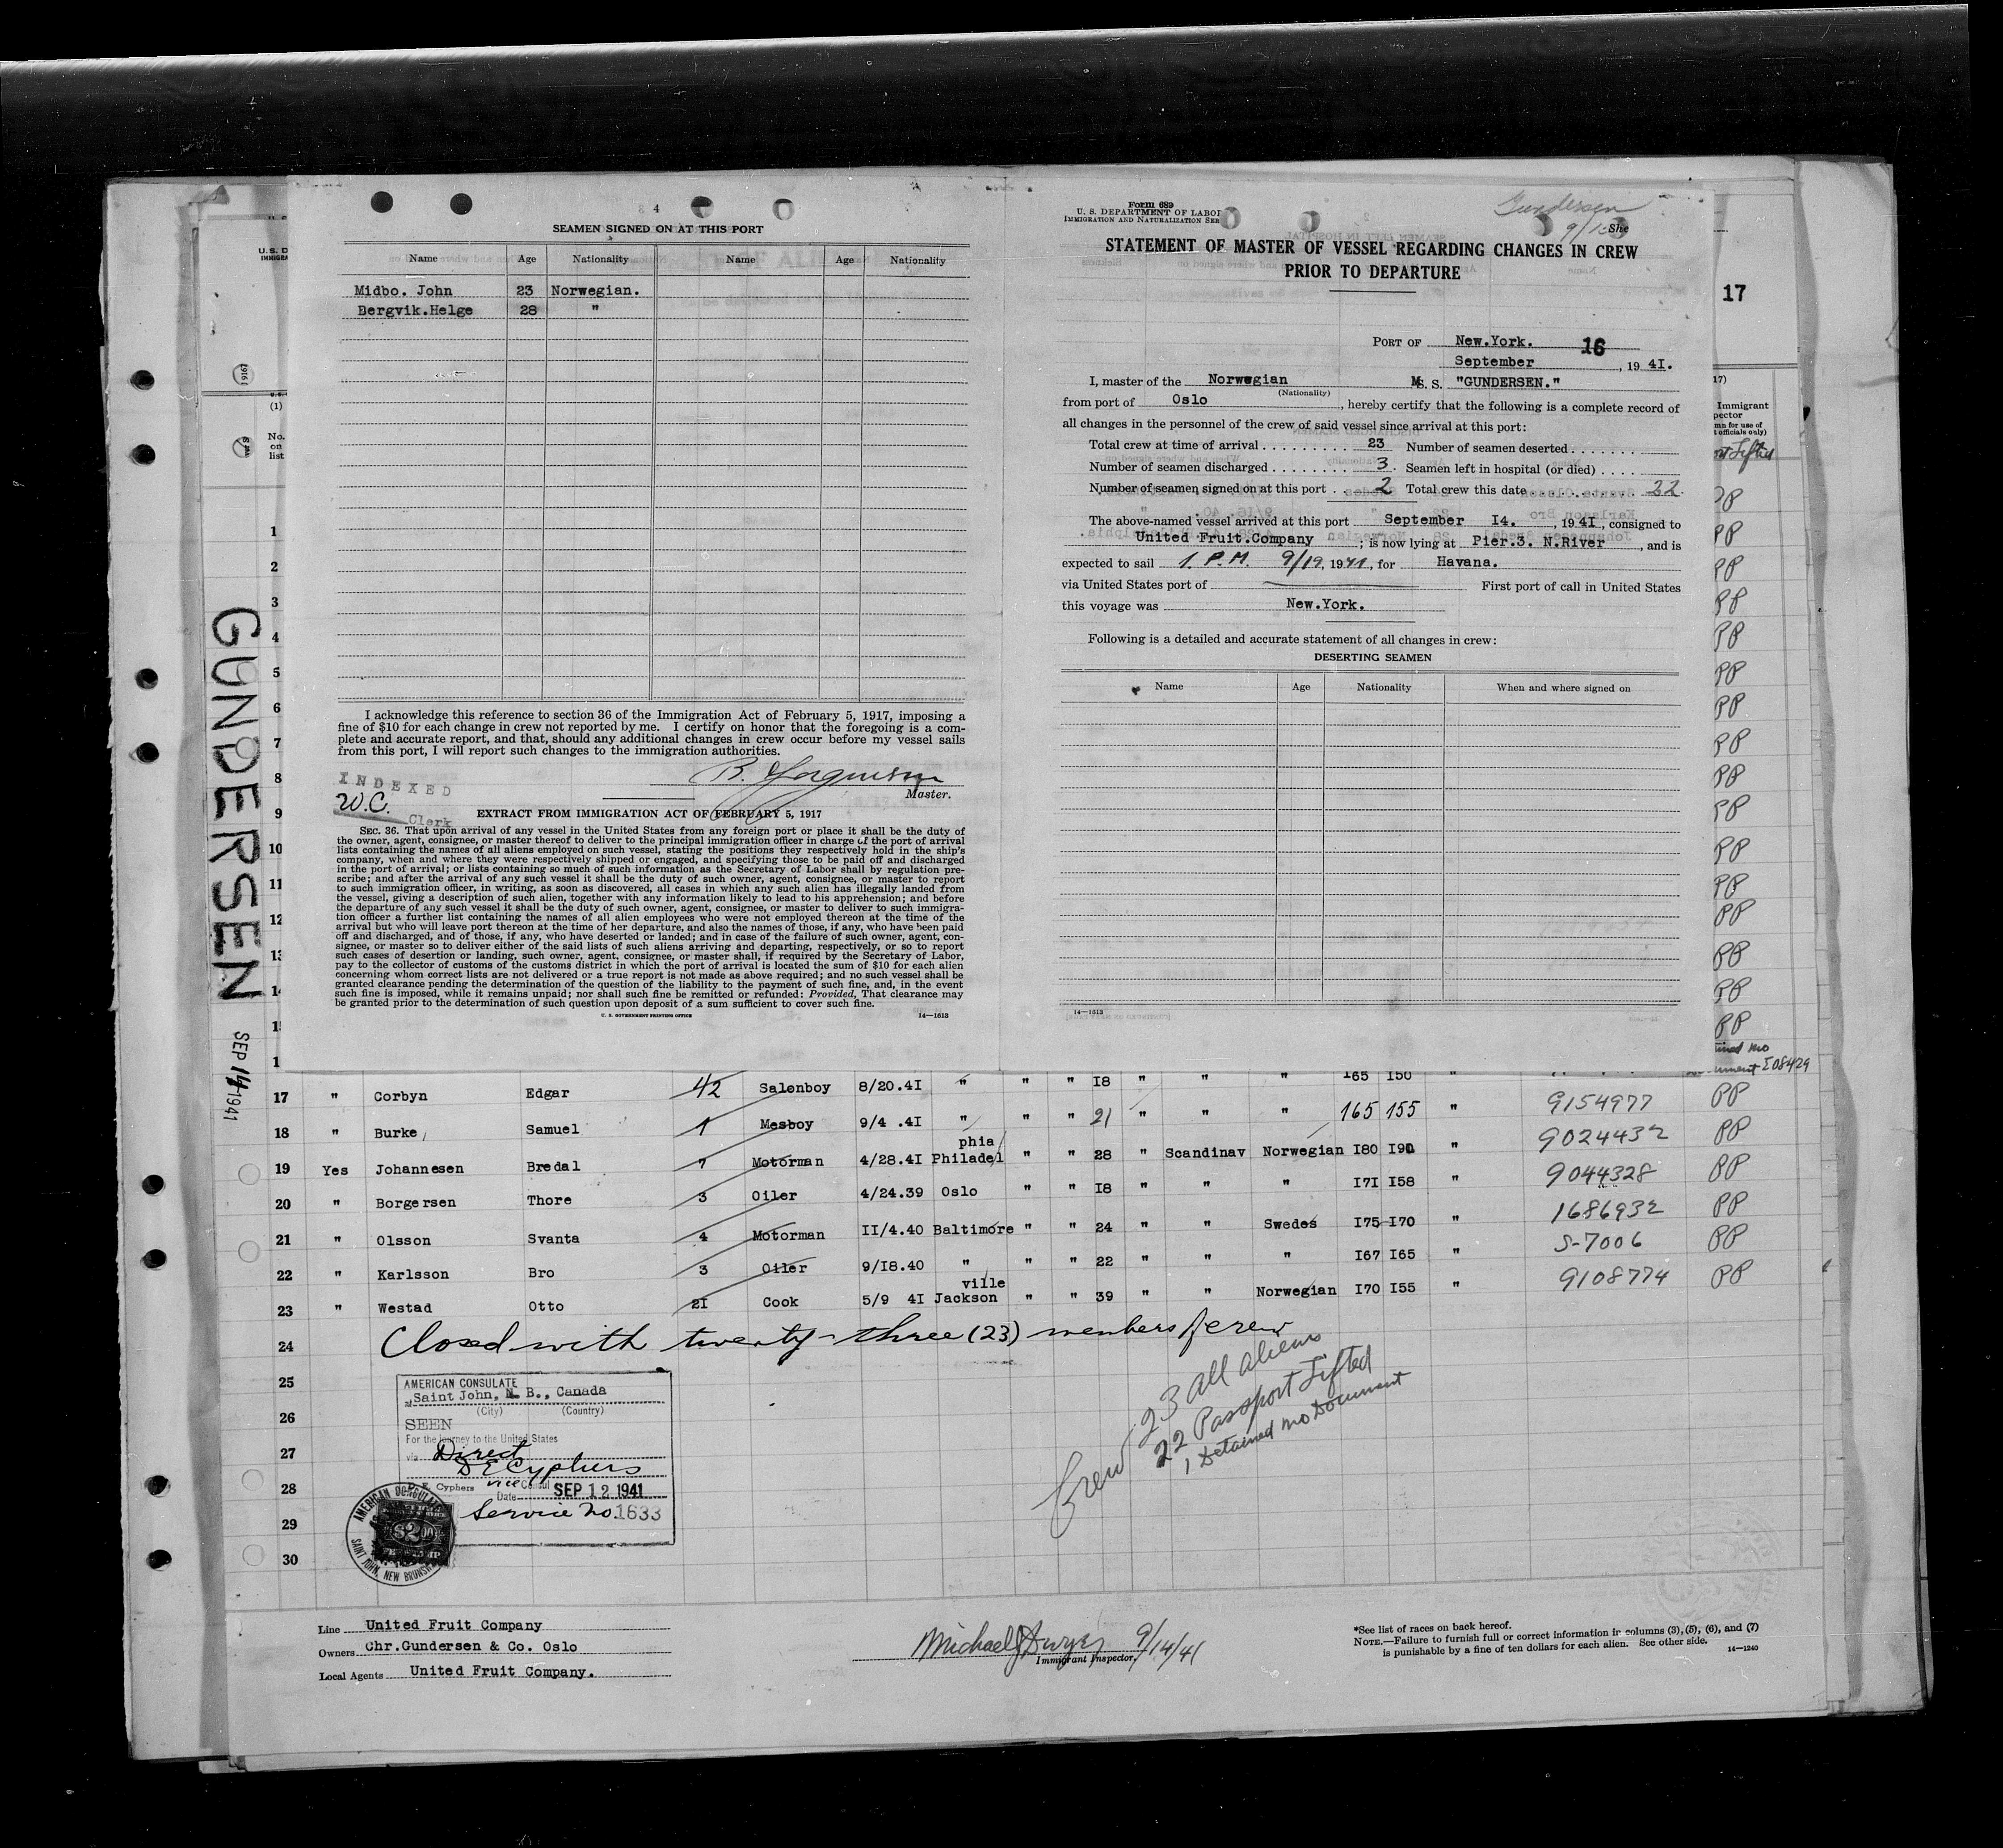 4
SEAMEN SIGNED ON AT THIS PORT
Name Age Nationality Name Age Nationality
Midbo. John 23 Norwegian.
Bergvik.Helge 28 "
I acknowledge this reference to section 36 of the Immigration Act of February 5, 1917, imposing a
fine of $10 for each change in crew not reported by me. I certify on honor that the foregoing is a com-
plete and accurate report, and that, should any additional changes in crew occur before my vessel sails
from this port, I will report such changes to the immigration authorities.
Master.
INDEXED
W.C.
Clerk
EXTRACT FROM IMMIGRATION ACT OF FEBRUARY 5, 1917
SEC. 36. That upon arrival of any vessel in the United States from any foreign port or place it shall be the duty of
the owner, agent, consignee, or master thereof to deliver to the principal immigration officer in charge of the port of arrival
lists containing the names of all aliens employed on such vessel, stating the positions they respectively hold in the ship's
company, when and where they were respectively shipped or engaged, and specifying those to be paid off and discharged
in the port of arrival; or lists containing so much of such information as the Secretary of Labor shall by regulation pre-
scribe; and after the arrival of any such vessel it shall be the duty of such owner, agent, consignee, or master to report
to such immigration officer, in writing, as soon as discovered, all cases in which any such alien has illegally landed from
the vessel, giving a description of such alien, together with any information likely to lead to his apprehension; and before
the departure of any such vessel it shall be the duty of such owner, agent, consignee, or master to deliver to such immigra-
tion officer a further list containing the names of all alien employees who were not employed thereon at the time of the
arrival but who will leave port thereon at the time of her departure, and also the names of those, if any, who have been paid
off and discharged, and of those, if any, who have deserted or landed; and in case of the failure of such owner, agent, con-
signee, or master so to deliver either of the said lists of such aliens arriving and departing, respectively, or so to report
such cases of desertion or landing, such owner, agent, consignee, or master shall, if required by the Secretary of Labor,
pay to the collector of customs of the customs district in which the port of arrival is located the sum of $10 for each alien
concerning whom correct lists are not delivered or a true report is not made as above required; and no such vessel shall be
granted clearance pending the determination of the question of the liability to the payment of such fine, and, in the event
such fine is imposed, while it remains unpaid; nor shall such fine be remitted or refunded: Provided, That clearance may
be granted prior to the determination of such question upon deposit of a sum sufficient to cover such fine.
U. S. GOVERNMENT PRINTING OFFICE 14—1613
Form 689
U. S. DEPARTMENT OF LABOR
IMMIGRATION AND NATURALIZATION SER
Gundersen
STATEMENT OF MASTER OF VESSEL REGARDING CHANGES IN CREW
PRIOR TO DEPARTURE
PORT OF New.York. 16
September , 19 41.
I, master of the Norwegian M S. S. "GUNDERSEN."
(Nationality)
from port of Oslo , hereby certify that the following is a complete record of
all changes in the personnel of the crew of said vessel since arrival at this port:
Total crew at time of arrival 23 Number of seamen deserted
Number of seamen discharged 3. Seamen left in hospital (or died)
Number of seamen signed on at this port 2 Total crew this date 22.
The above-named vessel arrived at this port September I4. , 19 4I , consigned to
United Fruit.Company ; is now lying at Pier.3. N.River , and is
expected to sail 1. P.M. 9/19, 1941, for Havana.
via United States port of First port of call in United States
this voyage was New.York.
Following is a detailed and accurate statement of all changes in crew:
DESERTING SEAMEN
Name Age Nationality When and where signed on
14—1613
17
GUNDERSEN
SEP 14 1941
(1)
No.
on
list
1
2
3
4
5
6
7
8
9
10
11
12
17 " Corbyn Edgar 42 Salenboy 8/20.4I " " " I8 " " " I65 I50 " PP
18 " Burke Samuel 1 Mesboy 9/4 .4I " " " 21 " " " 165 155 " 9154977 PP
19 Yes Johannesen Bredal 7 Motorman 4/28.4I Philadelphia " " 28 " Scandinav Norwegian I80 I90 " 9024432 PP
20 " Borgersen Thore 3 Oiler 4/24.39 Oslo " " I8 " " " I7I I58 " 9044328 PP
21 " Olsson Svanta 4 Motorman II/4.40 Baltimore " " 24 " " Swedes I75 I70 " 1686932 PP
22 " Karlsson Bro 3 Oiler 9/I8.40 " " " 22 " " " I67 I65 " S-7006 PP
23 " Westad Otto 2I Cook 5/9 4I Jacksonville " " 39 " " Norwegian I70 I55 " 9108774 PP
24 Closed with twenty-three (23) members of crew
25
26
27
28
29
30
AMERICAN CONSULATE
at Saint John, N. B., Canada
(City) (Country)
SEEN
For the journey to the United States
via Direct
D E Cyphers
Cyphers Vice Consul
Date SEP 12 1941
Service No. 1633
AMERICAN CONSULATE
SAINT JOHN, NEW BRUNSW
$2.00
Crew 23 all aliens
22 Passport Lifted
1 Detained no Document
Line United Fruit Company
Owners Chr.Gundersen & Co. Oslo
Local Agents United Fruit Company.
Michael J Dwyer 9/14/41
Immigrant Inspector.
*See list of races on back hereof.
NOTE.—Failure to furnish full or correct information in columns (3), (5), (6), and (7)
is punishable by a fine of ten dollars for each alien. See other side. 14—1240